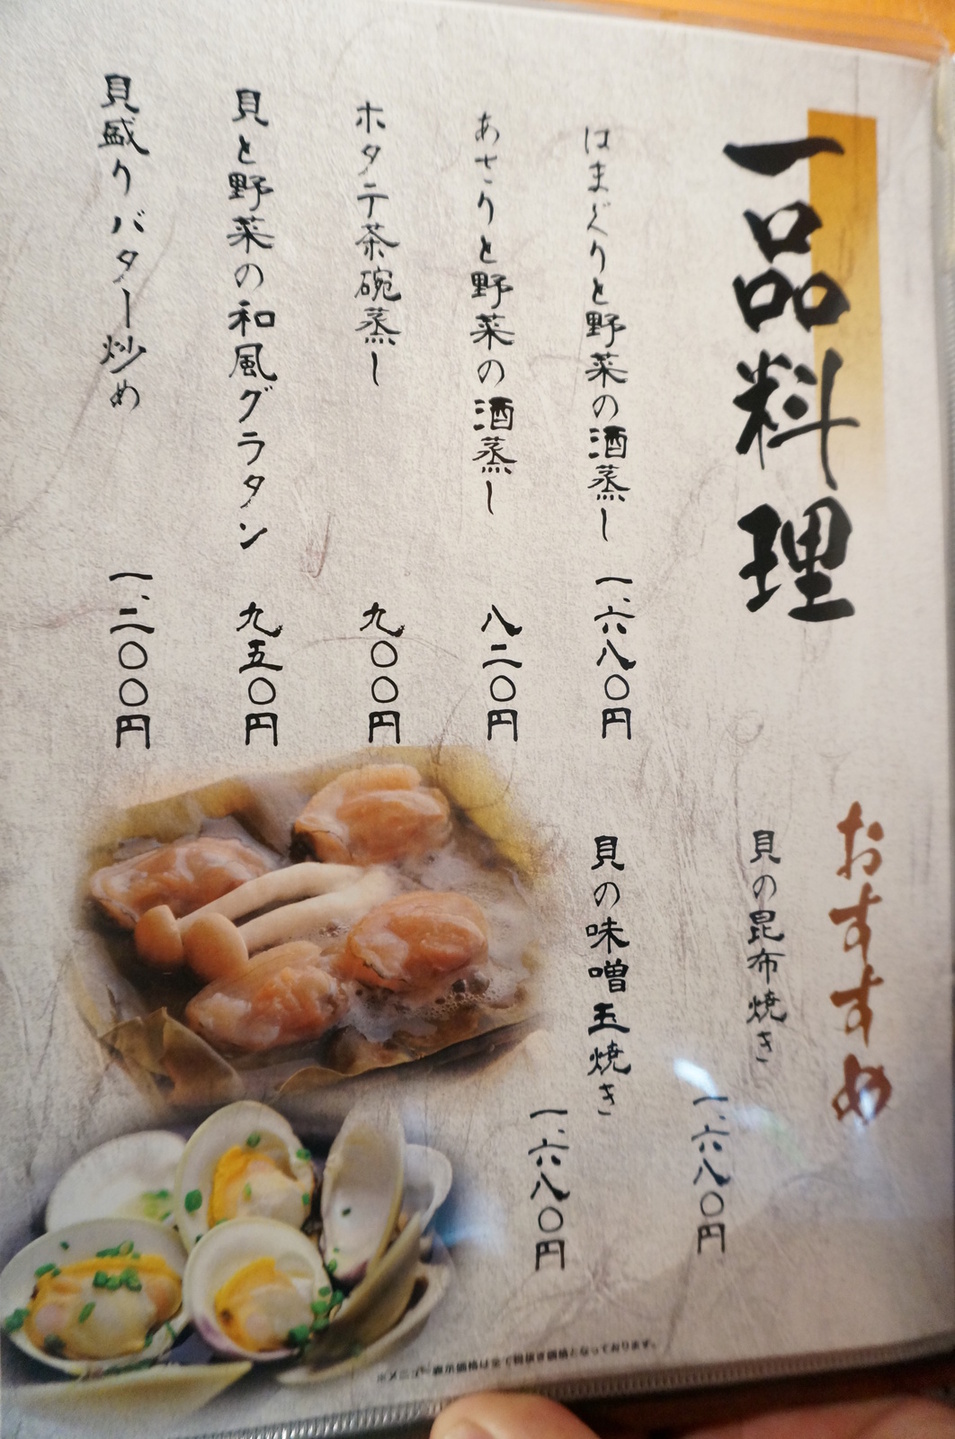 一品料理
はまぐりと野菜の酒蒸し 一、六八〇円
あさりと野菜の酒蒸し 八二〇円
ホタテ茶碗蒸し 九〇〇円
貝と野菜の和風グラタン 九五〇円
貝盛りバター炒め 一、二〇〇円
おすすめ
貝の昆布焼き 一、六八〇円
貝の味噌玉焼き 一、六八〇円
※メニュー表示価格は全て税抜き価格となっております。